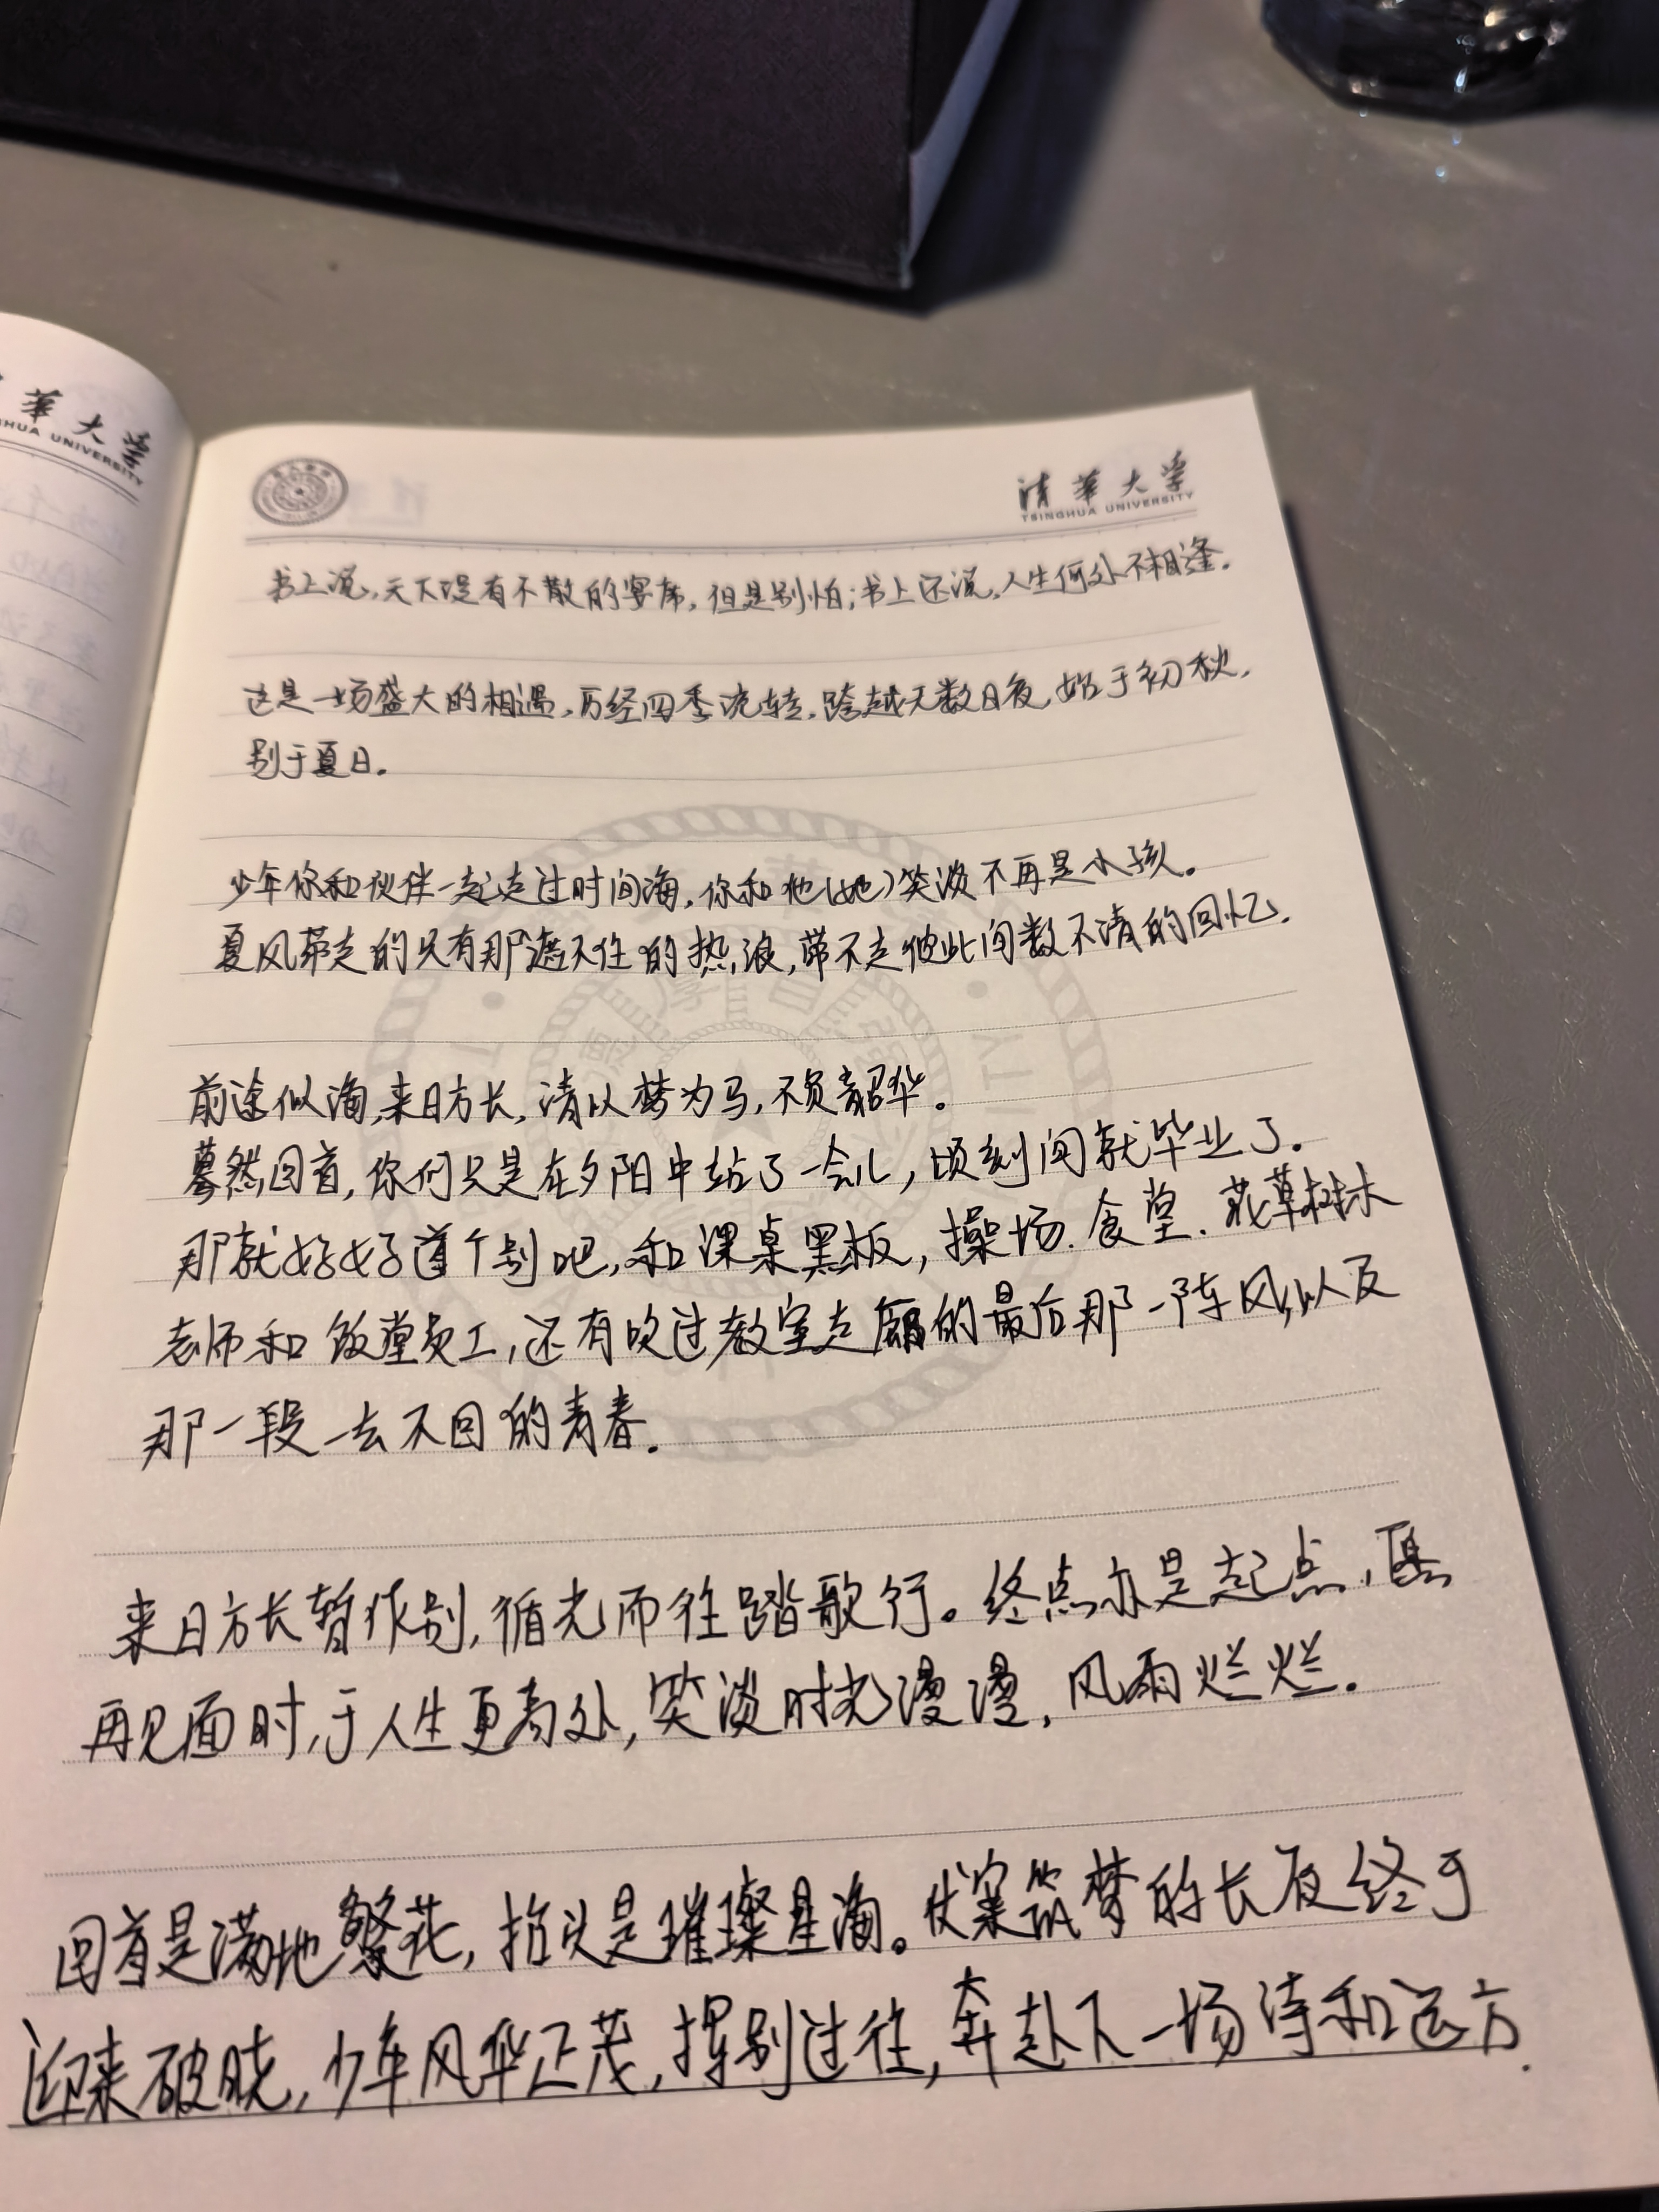 華大学
HUA UNIVERSITY
清華大学
TSINGHUA UNIVERSITY
书上说,天下没有不散的宴席,但是别怕;书上还说,人生何处不相逢.
这是一场盛大的相遇,历经四季流转,跨越无数日夜,始于初秋,
别于夏日.
少年你和伙伴一起走过时间海,你和他(她)笑谈不再是小孩.
夏风带走的只有那遮不住的热浪,带不走彼此间数不清的回忆.
前途似海,来日方长,请以梦为马,不负韶华。
蓦然回首,你们只是在夕阳中站了一会儿,顷刻间就毕业了.
那就好好道个别吧,和课桌黑板,操场.食堂.花草树木
老师和饭堂员工,还有吹过教室走廊的最后那一阵风,以及
那一段一去不回的青春.
来日方长暂作别,循光而往踏歌行。终点亦是起点,愿
再见面时,于人生更高处,笑谈时光漫漫,风雨烂烂.
回首是满地繁花,抬头是璀璨星海。伏案筑梦的长夜终于
迎来破晓,少年风华正茂,挥别过往,奔赴下一场诗和远方.